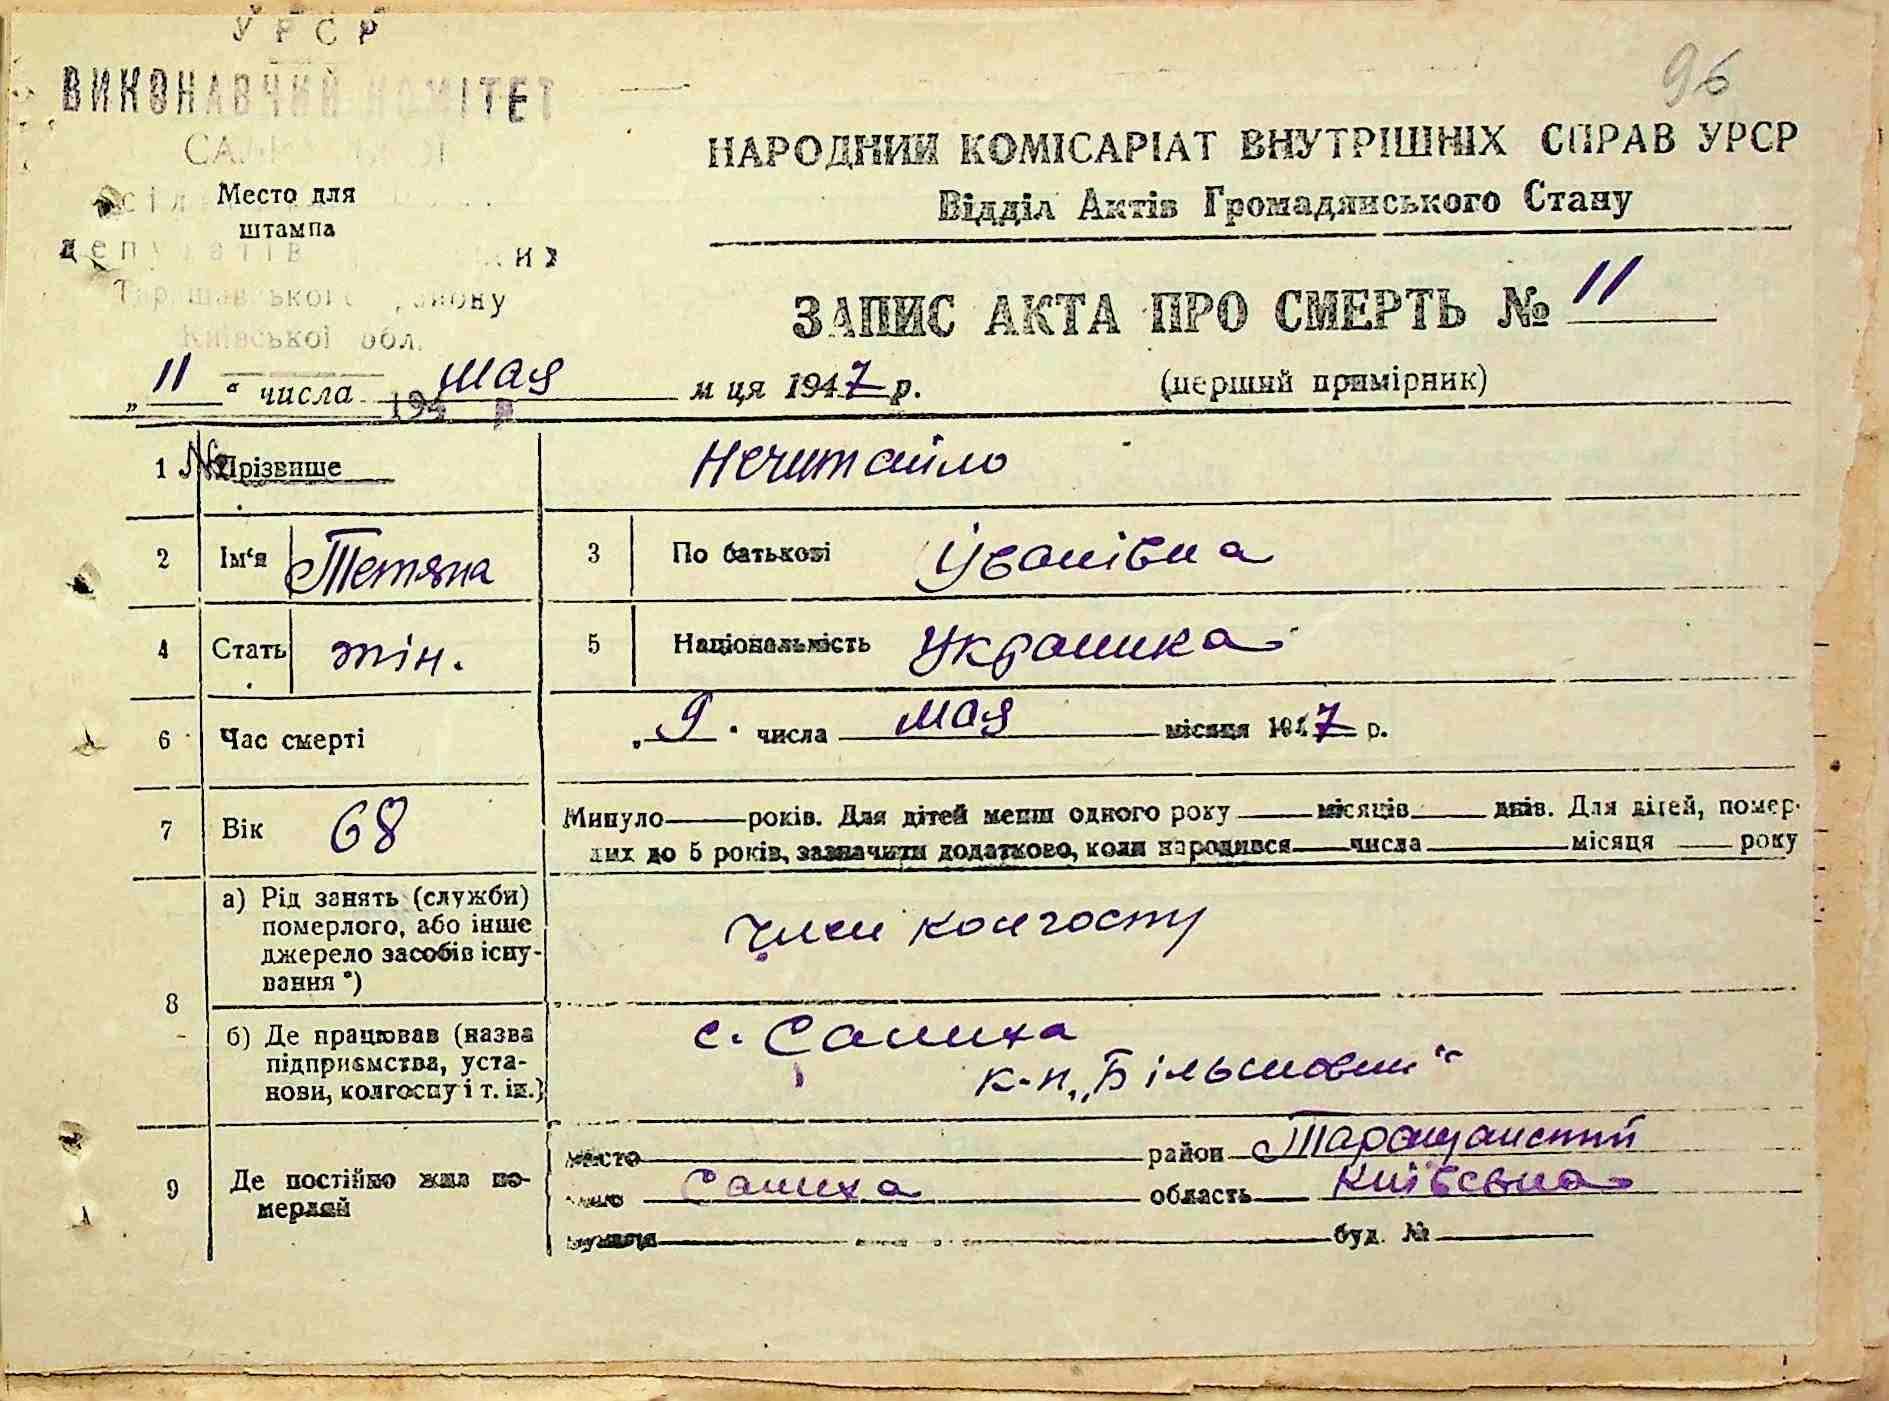 УРСР
ВИКОНАВЧИЙ КОМІТЕТ
96
НАРОДНИЙ КОМІСАРІАТ ВНУТРІШНІХ СПРАВ УРСР
Відділ Актів Громадянського Стану
Место для
штампа
депутатів
Таращанського району
Київської обл.
194 р
№
ЗАПИС АКТА ПРО СМЕРТЬ № 11
„11“ числа мая м ця 1947 р.
(перший примірник)
1 Прізвище Нечитайло
2 Ім'я Тетяна 3 По батькові Іванівна
4 Стать жін. 5 Національність Украинка
6 Час смерті „9" числа мая місяця 1947 р.
7 Вік 68 Минуло років. Для дітей менш одного року місяців днів. Для дітей, помер-
лих до 5 років, зазначити додатково, коли народився числа місяця року
8 а) Рід занять (служби)
померлого, або інше
джерело засобів існу-
вання *)
Член колгоспу
б) Де працював (назва
підприємства, уста-
нови, колгоспу і т. ін.)
с. Салиха
к-п „Більшовик"
9 Де постійно жив по-
мерлий
місто район Таращанский
село Салиха область Київська
вулиця буд. №